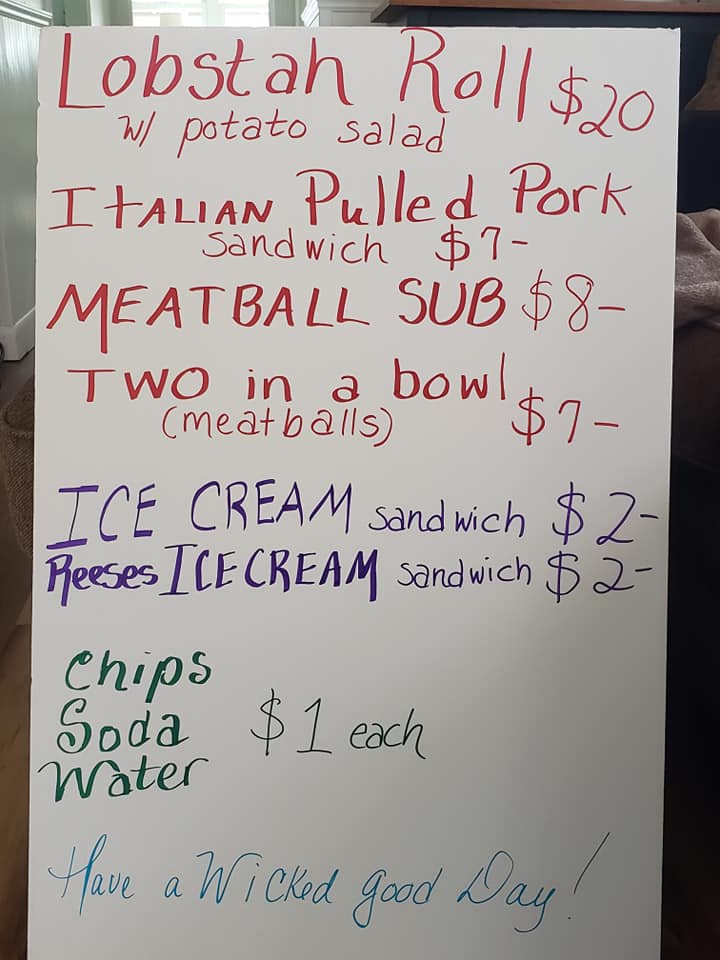 Lobstah Roll $20
w/ potato salad
ITALIAN Pulled Pork
Sandwich $7-
MEATBALL SUB $8-
TWO in a bowl
(meatballs) $7-
ICE CREAM sandwich $2-
Reeses ICE CREAM sandwich $2-
Chips
Soda $1 each
Water
Have a Wicked good Day!